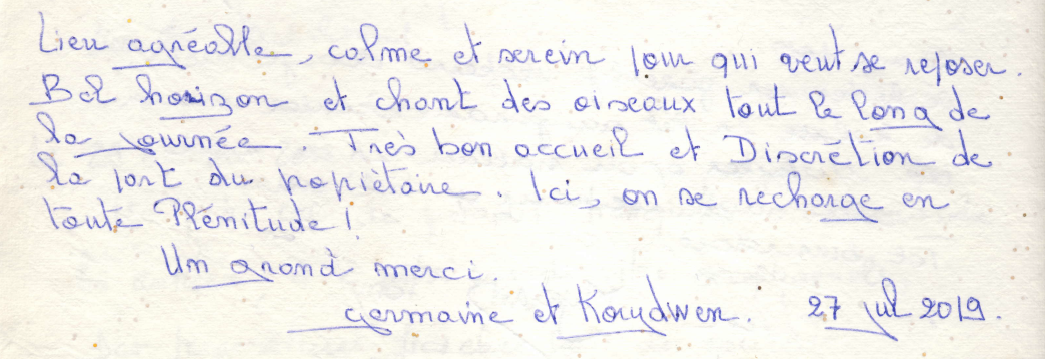 Lieu agréable, calme et serein pour qui veut se reposer.
Bel horizon et chant des oiseaux tout le long de
la journée. Très bon accueil et Discrétion de
la part du popiètaire. Ici, on se recharge en
toute Plénitude !
Un grand merci.
germaine et Koudwen. 27 jul 2019.